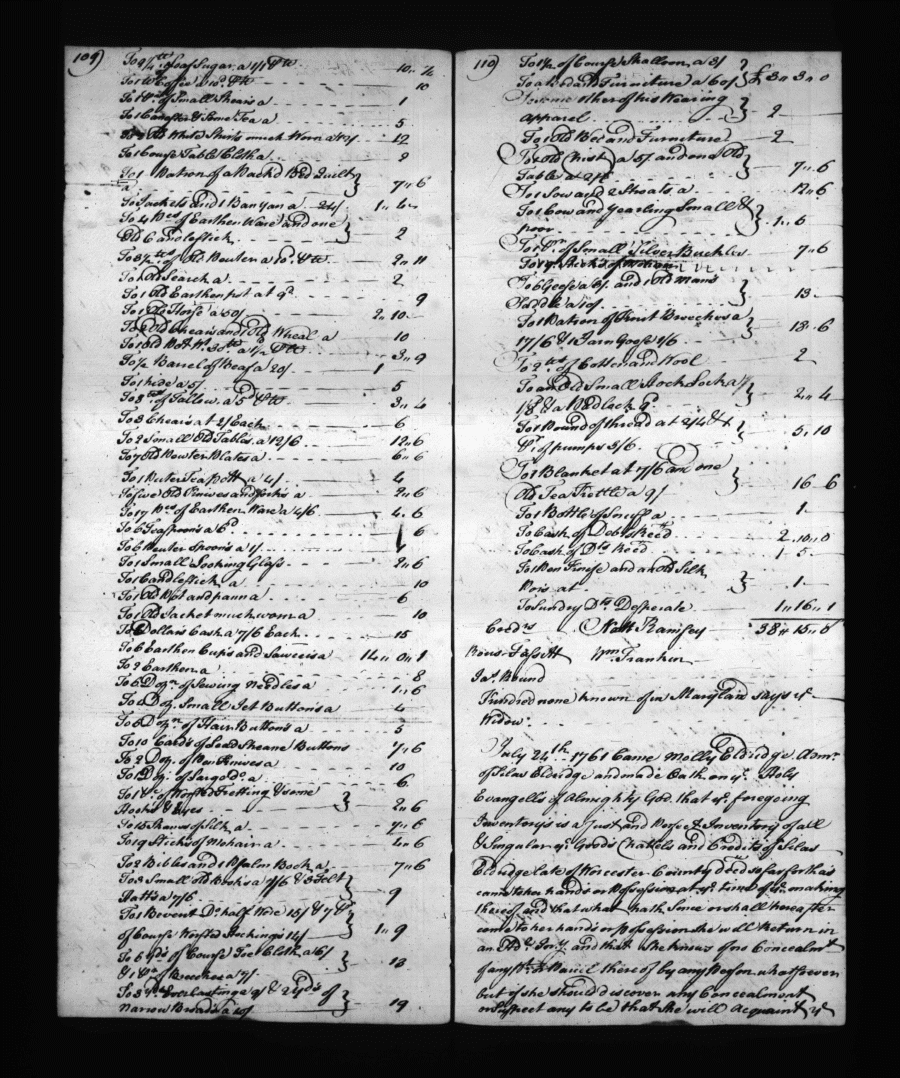 109
To 9 1/4 lb of Loaf Sugar a 1/1 P lb - - - 10 " 1/2
To 1 lb Coffee a 10d P lb - - - 10
To 1 Pr of Small Shears a - - - 1
To 1 Canester & Some Tea a - - - 5
Old White Shirts much Worn a - - - 12
To 1 Course Table Cloth a - - - 2
To 1 Patron of a Rack'd Bed Quilt
a - - - 7 " 6
To Jackets and 1 Banyan a 24/ - - - 1 "
To 4 Pces of Earthen Ware and one
Old Candlestick - - - 2
To 3 1/2 lbs of Old Pewter a 10d P lb - - - 2 " 11
To 1 Old Search a - - - 2
To 1 Old Earthen pot at 9d - - - 9
To 1 Old Horse a 50/ - - - 2 " 10
To 2 Old Chears and 1 Old Wheal a - - - 10
To 1 Old Pot Wt 30 lb a 1 1/2 P lb - - - 3 " 9
To 1/2 Barrel of Beaf a 20/ - - - 1
To 1 hide a 5/ - - - 5
To 8 lb of Tallow a 5d P lb - - - 3 " 4
To 3 Chears at 2/ Each - - - 6
To 2 Small Old Tables a 12/6 - - - 12 " 6
To 7 Old Pewter Plates a - - - 6 " 6
To 1 Puter Tea Pott a 4/ - - - 4
To five Old Knives and forks a - - - 2 " 6
To 17 Pces of Earthen Ware a 4/6 - - - 4 " 6
To 6 Teaspoons a 6d - - - 6
To 6 Pewter Spoons a 1/ - - - 1
To 1 Small Looking Glass - - - 2 " 6
To 1 Candlestick a - - - 10
To 1 Old Pot and pann a - - - 6
To 1 Old Jacket much worn a - - - 10
To 2 Dollars Cash a 7/6 Each - - - 15
To 6 Earthen Cups and Sawcers a - - - 14 " 0 " 1
To 2 Earthen a - - - 8
To 6 Dozn of Sewing Needles a - - - 1 " 6
To 6 Doz. Small Jet Buttons a - - - 4
To 6 Dozn of Hair Buttons a - - - 5
To 10 Cards of Lead Sheane Buttons - - - 7 " 6
To 2 Doz. of Pen Knives a - - - 10
To 1 Doz. of Large Do a - - - 6
To 1 Pce of Worsted Fretting & some
Hooks & Eyes - - - 2 " 6
To 15 Skanes of Silk a - - - 7 " 6
To 19 Sticks of Mohair a - - - 4 " 6
To 2 Bibles and 1 Psalm Book a - - - 7 " 6
To 3 Small Old Books a 1/6 & 3 Felt
Hatts a 7/6 - - - 9
To 1 Bevent Do half Wore 15/ & 7 Pr
of Course Worsted Stockings 14/ - - - 1 " 9
To 6 yds of Course Toe Cloth a 6/
& 1 Pr of Breeches a 7/ - - - 13
To 3 yds Everlasting a 9/ & 2 yds of
narrow Broad a 10/ - - - 19
110
To 1 1/2 of Course Shalloon a 3/
To a Bed and Furniture a 60/ £ 3 " 3 " 0
To some other of his Wearing
Apparel - - - 2
To 1 Old Bed and Furniture - - - 2
To 1 Old Chist a 5/ and one Old
Table at 2/6 - - - 7 " 6
To 1 Sow and 2 Shoats a - - - 12 " 6
To 1 Cow and Yearling Small &
poor - - - 1 " 6
To 1 Pr of Small Silver Buckles - - - 7 " 6
To 19 Sticks of Mohair
To 6 Geese a 8/ and 1 Old Mans
Saddle a 10/ - - - 13
To 1 Patron of Knit Breeches a
17/6 & 1 Tarn Goose 1/6 - - - 18 " 6
To 2 lbs of Cotten and Wool - - - 2
To an Old Small Stock Lock a
1/8 & a Padlock 9d - - - 2 " 4
To 1 Pound of thread at 2/4 & 1
Pr of pumps 3/6 - - - 5 " 10
To 1 Blanket at 7/6 and one
Old Tea Kettle a 9/ - - - 16 - 6
To 1 Bottle of Snuff a - - - 1
To Cash of Debts Reed - - - 2 " 10 " 0
To Cash of Do Reed - - - 1 " 5
To 1 Pen Knife and an Old Silk
Purs at - - - 1
To Sundry Do Desperate - - - 1 " 16 " 1
Credrs Natt Ramsey 38 " 15 " 0
Rous Fassett Wm Franken
Jas. Round
Kindred none known of in Maryland says ye
Widow.
July 24th 1761 Came Molly Eldridge Admx.
of Selas Eldridge and made Oath on ye Holy
Evangells of Almighty God that ye foregoing
Inventory is a Just and Perfect Inventory of all
& Singular ye Goods Chattels and Credits of Selas
Eldridge late of Worcester County decd so far forth as
came to her hands or Possession at ye time of ye making
thereof and that what hath Since or shall hereafter
come to her hands or possession she will return in
an Addl Inv.y and that she knows of no Concealmt
of any Part or Parcel thereof by any Person whatsoever
but if she should discover any Concealment
or Suspect any to be that She will Acquaint ye